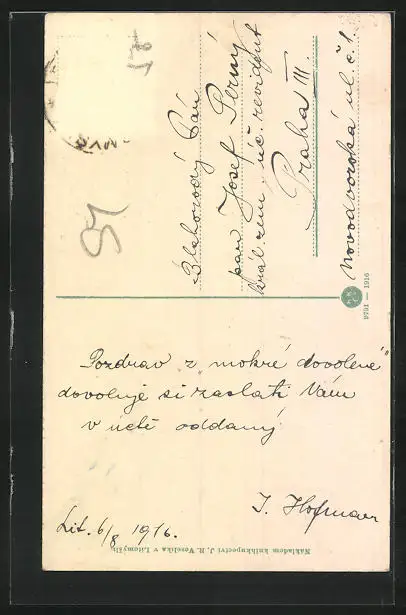 Blahorodý Pán
pan Josef Černý
král. zem. úč. revident
Praha III
Novodvorská ul. č. 1.
9791 — 1916
Pozdrav z „mokré dovolené"
dovoluje si zaslati Vám
v úctě oddaný
J. Hofmann
Lit. 6/8 1916.
Nákladem knihkupectví J. R. Veselíka v Litomyšli.